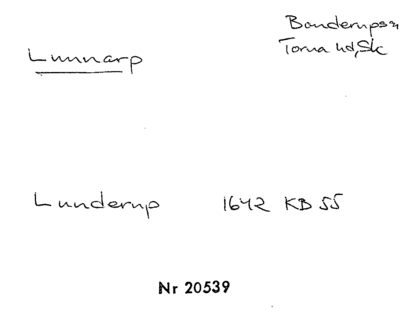 Bonderups sn
Torna hd, Sk
Lunnarp
Lunderup 1642 KB 55
Nr 20539